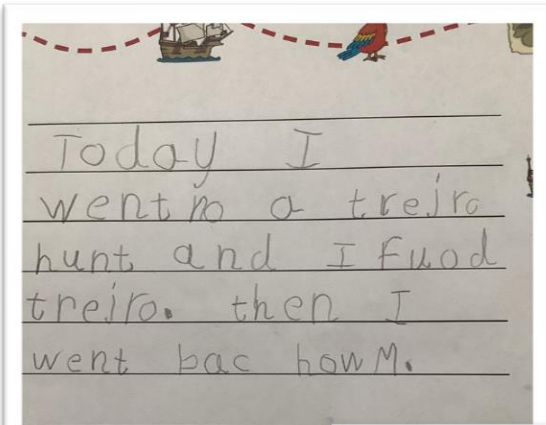 Today I
went no a trejro
hunt and I fuod
trejro. then I
went bac howM.